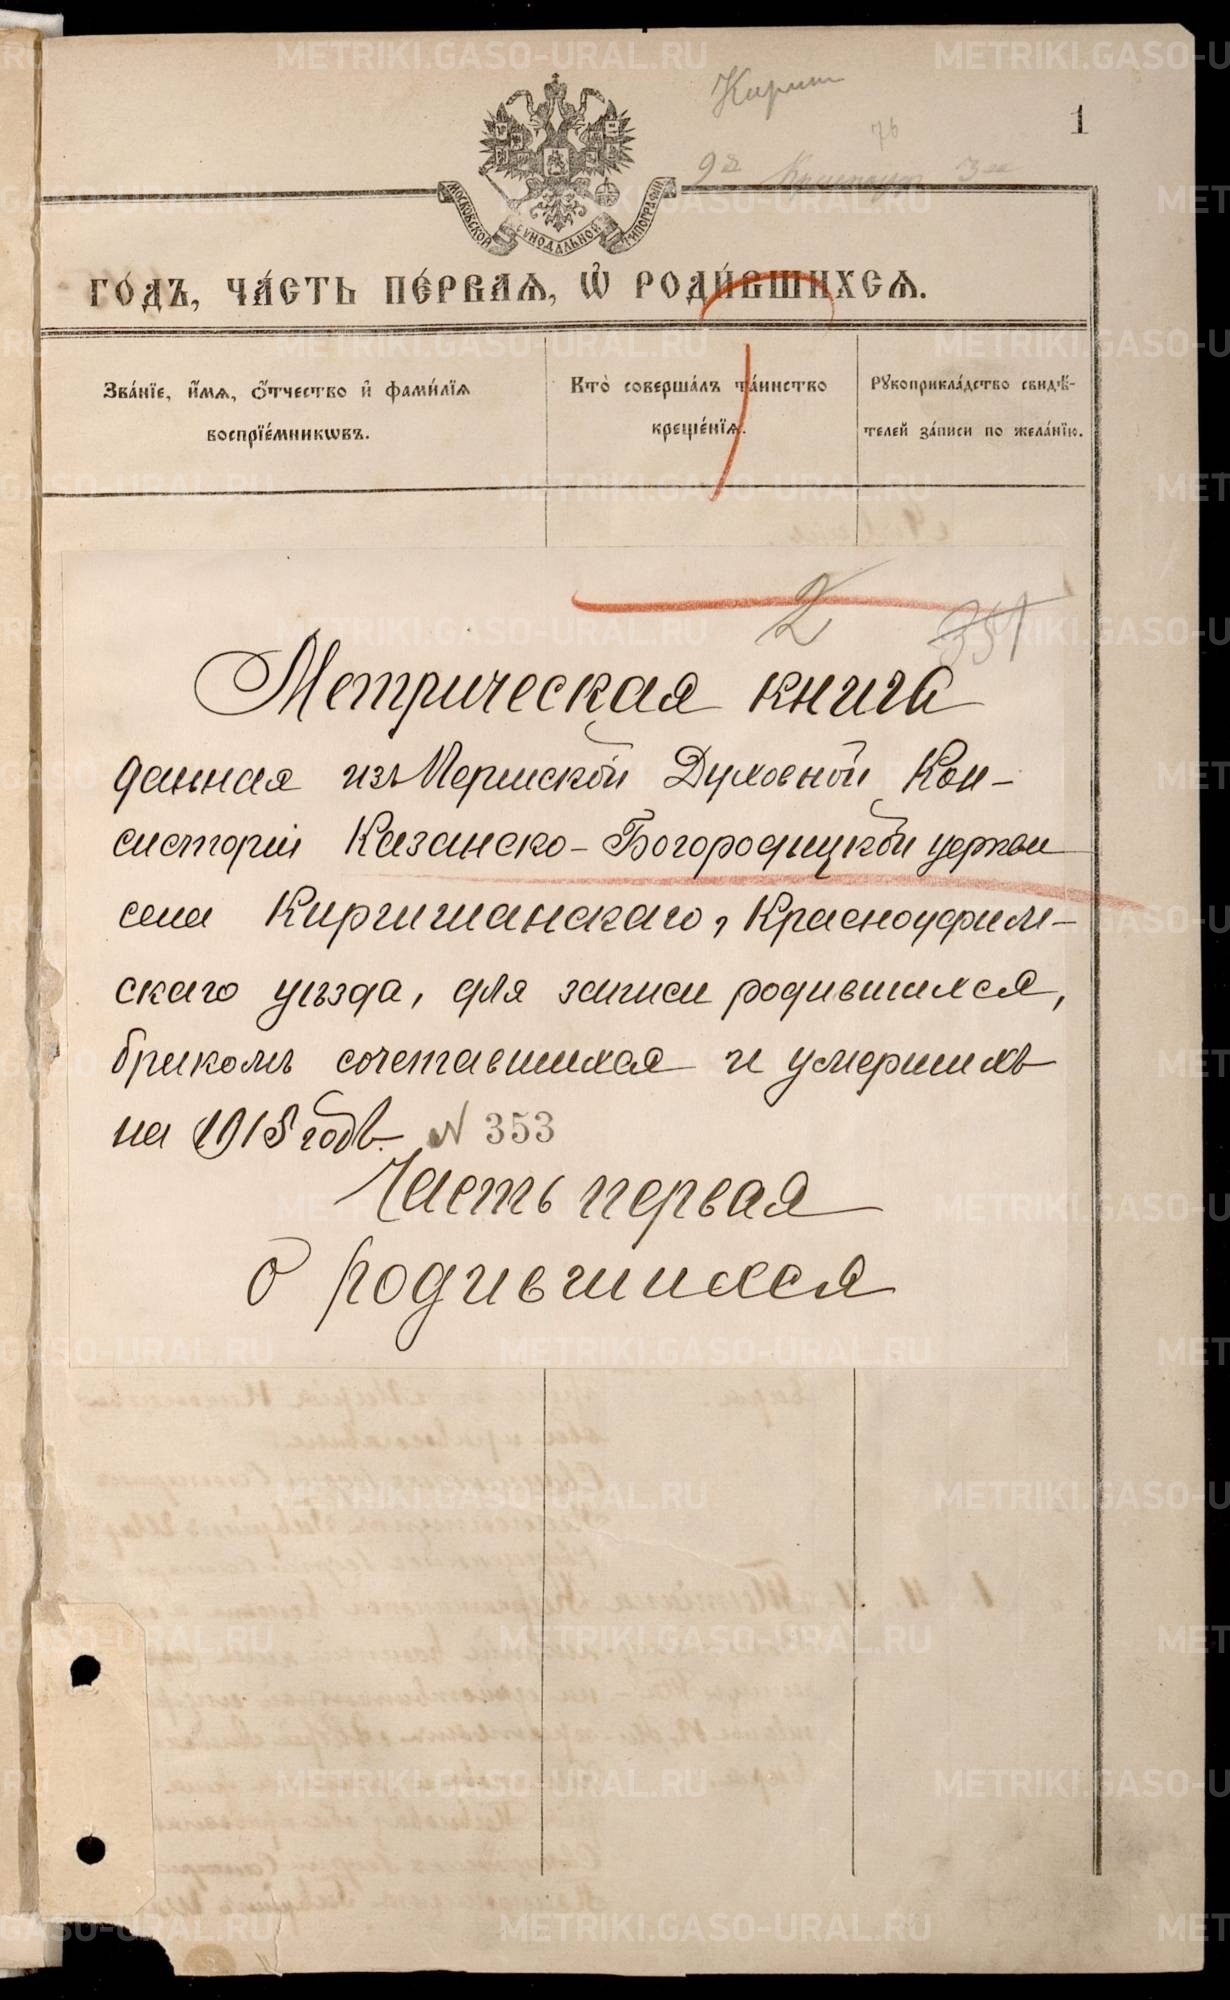 Кириш
76
1
9а
МОСКОВСКОЙ СУНОДАЛЬНОЙ ТИПОГРАФІИ
ГО́ДЪ, ЧА́СТЬ ПЕ́РВАѦ, Ѡ҆ РОДИ́ВШИХСѦ.
Зва́нїе, и҆́мѧ, ѻ҆́тчество и҆ фами́лїѧ
воспрїе́мникѡвъ.
Кто̀ соверша́лъ та́инство
креще́нїѧ.
Рꙋкоприкла́дство свидѣ́-
телей за́писи по жела́нїю.
2
351
Метрическая книга
данная изъ Пермской Духовной Кон-
систоріи Казанско-Богородицкой церкви
села Киргишанскаго, Красноуфим-
скаго уѣзда, для записи родившихся,
бракомъ сочетавшихся и умершихъ
на 1918 годъ. № 353
Часть первая
о родившихся
METRIKI.GASO-URAL.RU